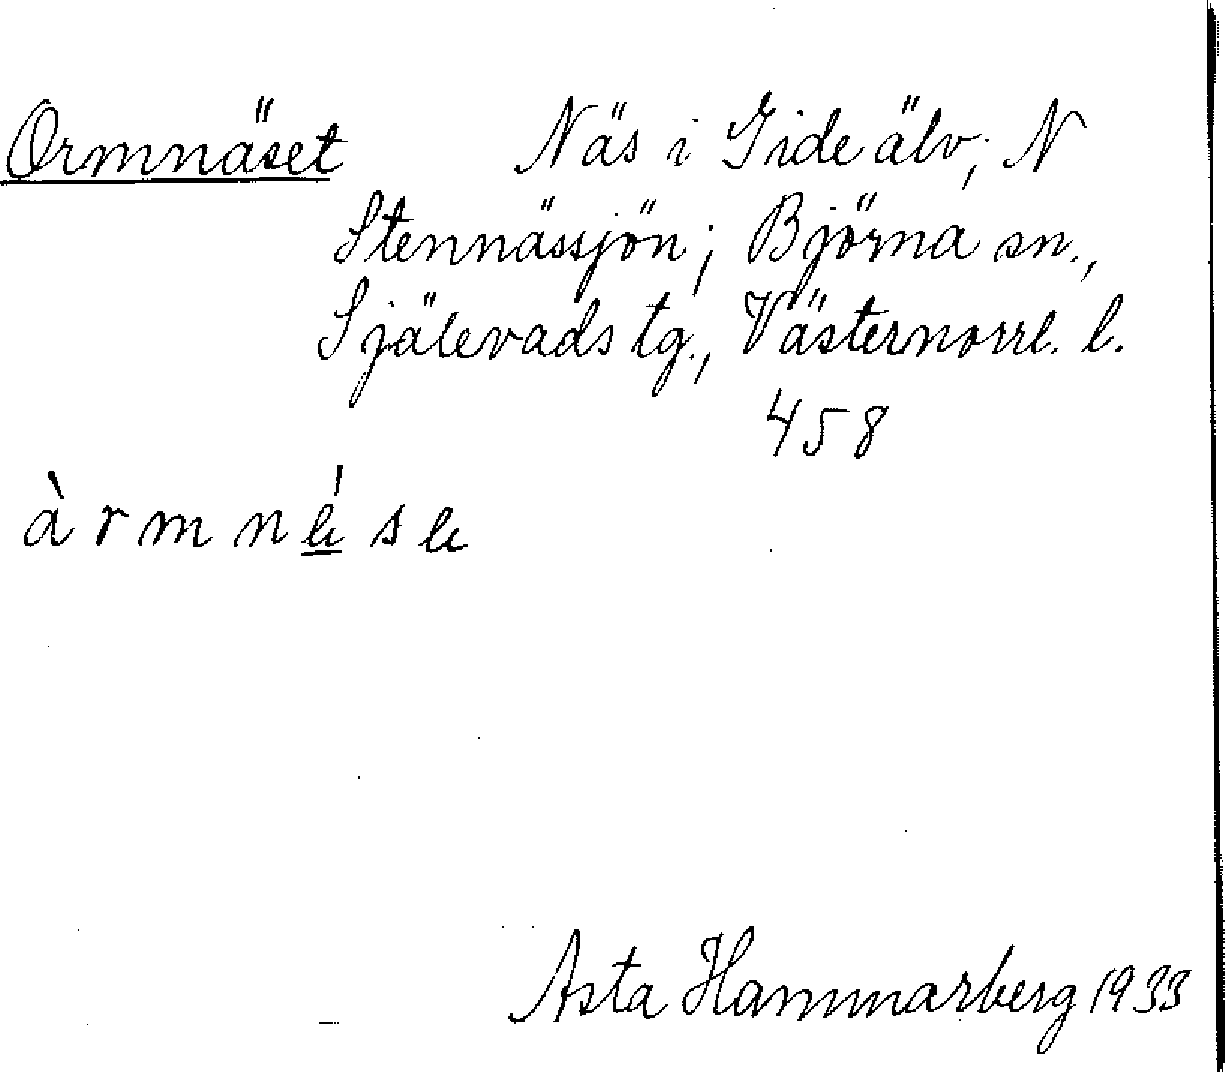 Ormnäset Näs i Gide älv; N
Stennässjön; Björna sn.,
Själevads tg., Västernorrl. l.
458
Asta Hammarberg 1933